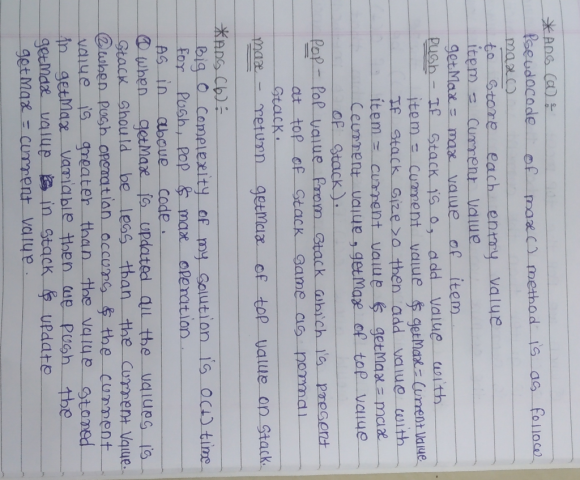 *Ans (a):-
Pseudocode of max() method is as follow
max()
to store each entry value
item = current value
getMax = max value of item
Push - If stack is 0, add value with
item = current value & getMax = current value
If stack size >0 then add value with
item = current value & getMax = max
(current value, getMax of top value
of stack).
Pop - Pop value from stack which is present
at top of stack same as normal
stack.
max - return getMax of top value on stack.
*Ans (b):-
Big O complexity of my solution is O(1) time
for push, pop & max operation.
As in above code.
① when getMax is updated all the values is
stack should be less than the current value.
② when push operation occurs & the current
value is greater than the value stored
in getMax variable then we push the
getMax value in stack & update
getMax = current value.